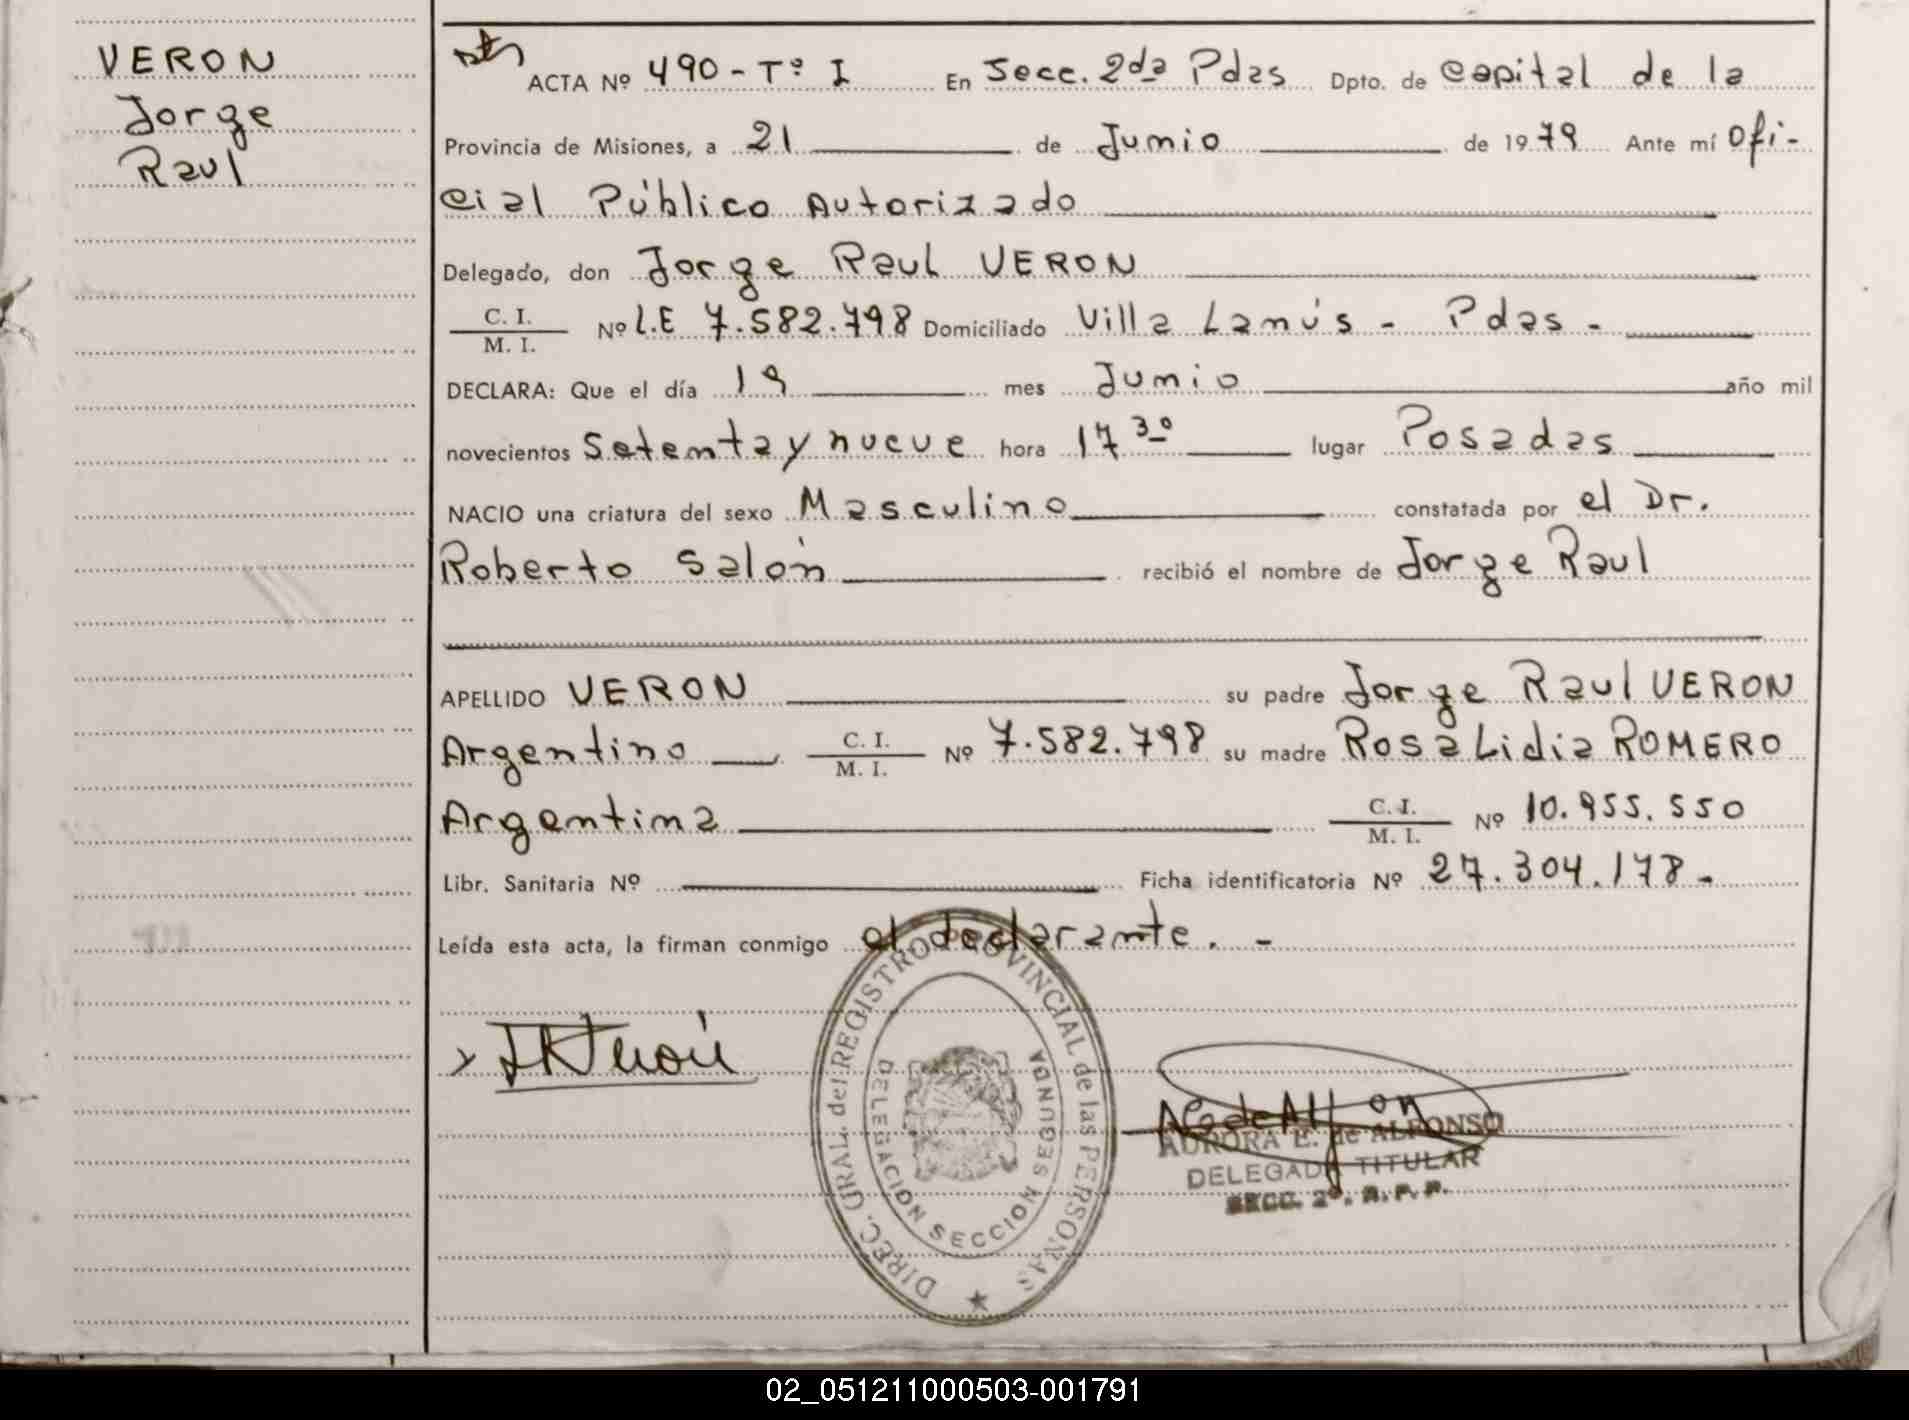 VERON
Jorge
Raul
ACTA Nº 490 - Tº I En Secc. 2da Pdas Dpto. de Capital de la
Provincia de Misiones, a 21 de Junio de 1979 Ante mí Ofi-
cial Público Autorizado
Delegado, don Jorge Raul VERON
C. I.
M. I. Nº L.E 7.582.798 Domiciliado Villa Lanús - Pdas -
DECLARA: Que el día 19 mes Junio año mil
novecientos setenta y nueve hora 17 30 lugar Posadas
NACIO una criatura del sexo Masculino constatada por el Dr.
Roberto Salón recibió el nombre de Jorge Raul
APELLIDO VERON su padre Jorge Raul VERON
Argentino C. I. M. I. Nº 7.582.798 su madre Rosa Lidia ROMERO
Argentina C. I. M. I. Nº 10.955.550
Libr. Sanitaria Nº Ficha identificatoria Nº 27.304.178 -
Leída esta acta, la firman conmigo el declarante. -
DIREC. GRAL. del REGISTRO PROVINCIAL de las PERSONAS
DELEGACION SECCION SEGUNDA
AURORA E. de ALFONSO
DELEGADA TITULAR
SECC. 2ª. R. P. P.
02_051211000503-001791